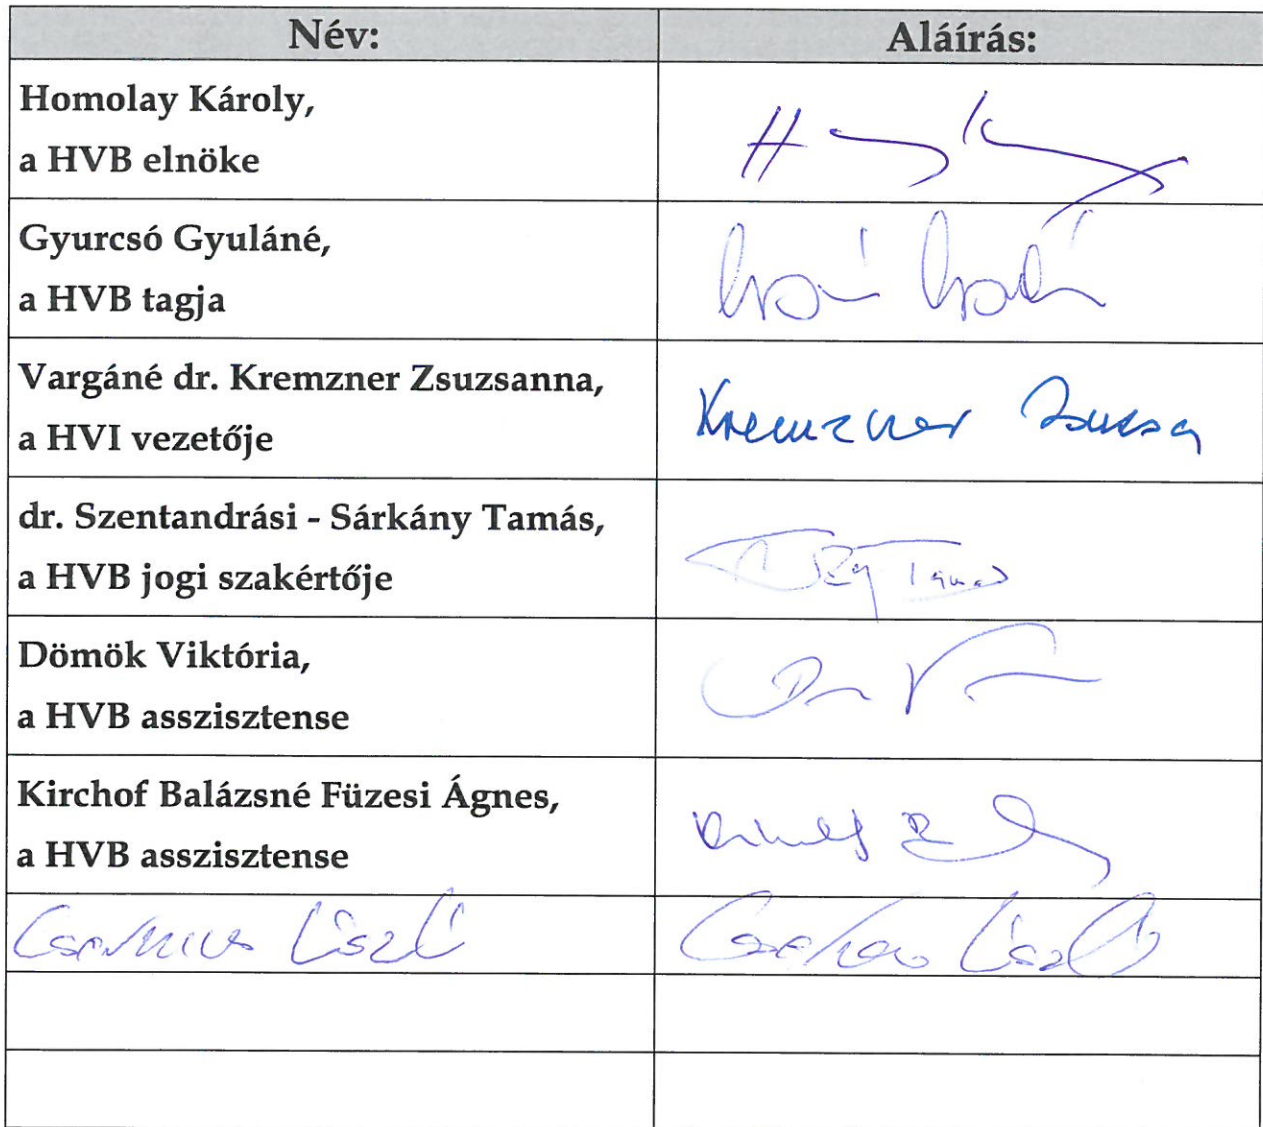 Név: Aláírás:
Homolay Károly,
a HVB elnöke
Gyurcsó Gyuláné,
a HVB tagja
Vargáné dr. Kremzner Zsuzsanna,
a HVI vezetője
Kremzner Zsuzsa
dr. Szentandrási - Sárkány Tamás,
a HVB jogi szakértője
Tamás
Dömök Viktória,
a HVB asszisztense
Kirchof Balázsné Füzesi Ágnes,
a HVB asszisztense
László László